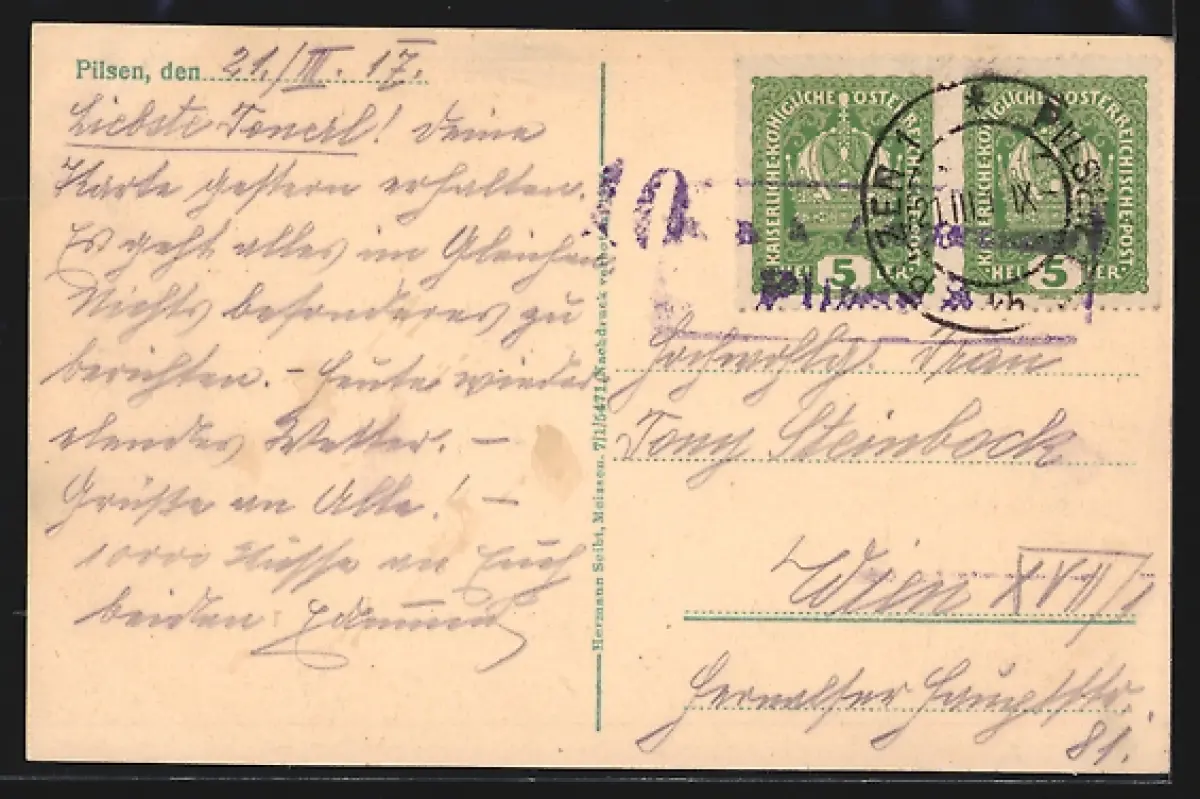 Pilsen, den 21./III. 17.
Liebste Tonerl! Deine
Karte gestern erhalten.
Es geht alles im Gleichen
Nichts besonderes zu
berichten. - Heute wieder
elendes Wetter. -
Grüße an Alle! -
10000 Küsse an Euch
beiden Edmund
Hermann Seibt, Meissen. 7/1/5471 Nachdruck verboten
KAISERLICHE KÖNIGLICHE ÖSTERREICHISCHE POST
HELLER 5
KAISERLICHE KÖNIGLICHE ÖSTERREICHISCHE POST
HELLER 5
PILSEN 1
PLZEŇ 1
Hochwohlg. Frau
Tony Steinbock
Wien XVII/1
Hernalser Hauptstr.
81.